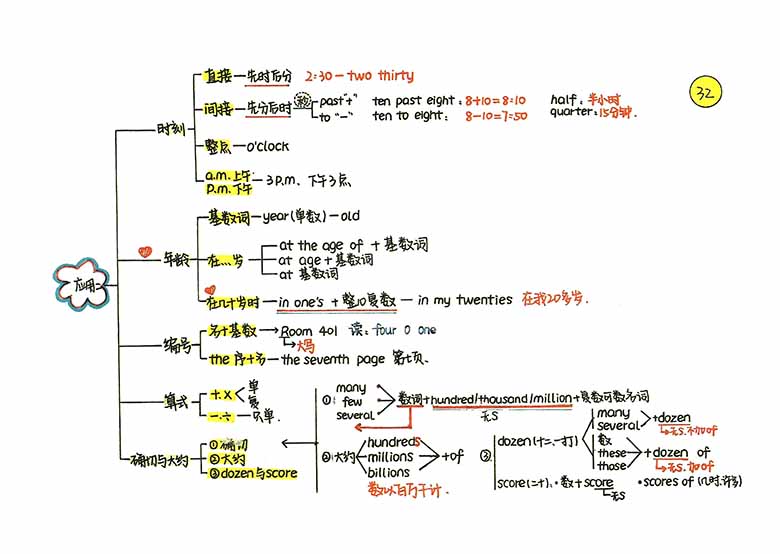 直接 — 先时后分 2:30 - two thirty
32
时刻
间接 — 先分后时
past "+" ten past eight : 8+10=8:10 half : 半小时
to "-" ten to eight : 8-10=7:50 quarter : 15分钟.
整点 — o'clock
a.m. 上午
P.m. 下午 — 3 P.m. 下午3点
基数词 — year(单数) — old
年龄
在...岁
at the age of + 基数词
at age + 基数词
at 基数词
应用
在几十岁时 — in one's + 整10复数 — in my twenties 在我20多岁.
编号
名+基数 → Room 401 读: four 0 one
大写
the 序+名 — the seventh page 第七页.
算式
+.× 单
复
-.÷ — 只单.
① many
few
several
数词+hundred/thousand/million+复数可数名词
无S
确切与大约
①确切
②大约
③dozen与score
②大约
hundreds
millions
billions
+of
数以百万千计.
③
dozen(十二,一打)
many
several
+dozen
无S.不加of
数
these
those
+dozen of
无S.加of
score(二十). 数+score
无S
scores of (几时.许多)